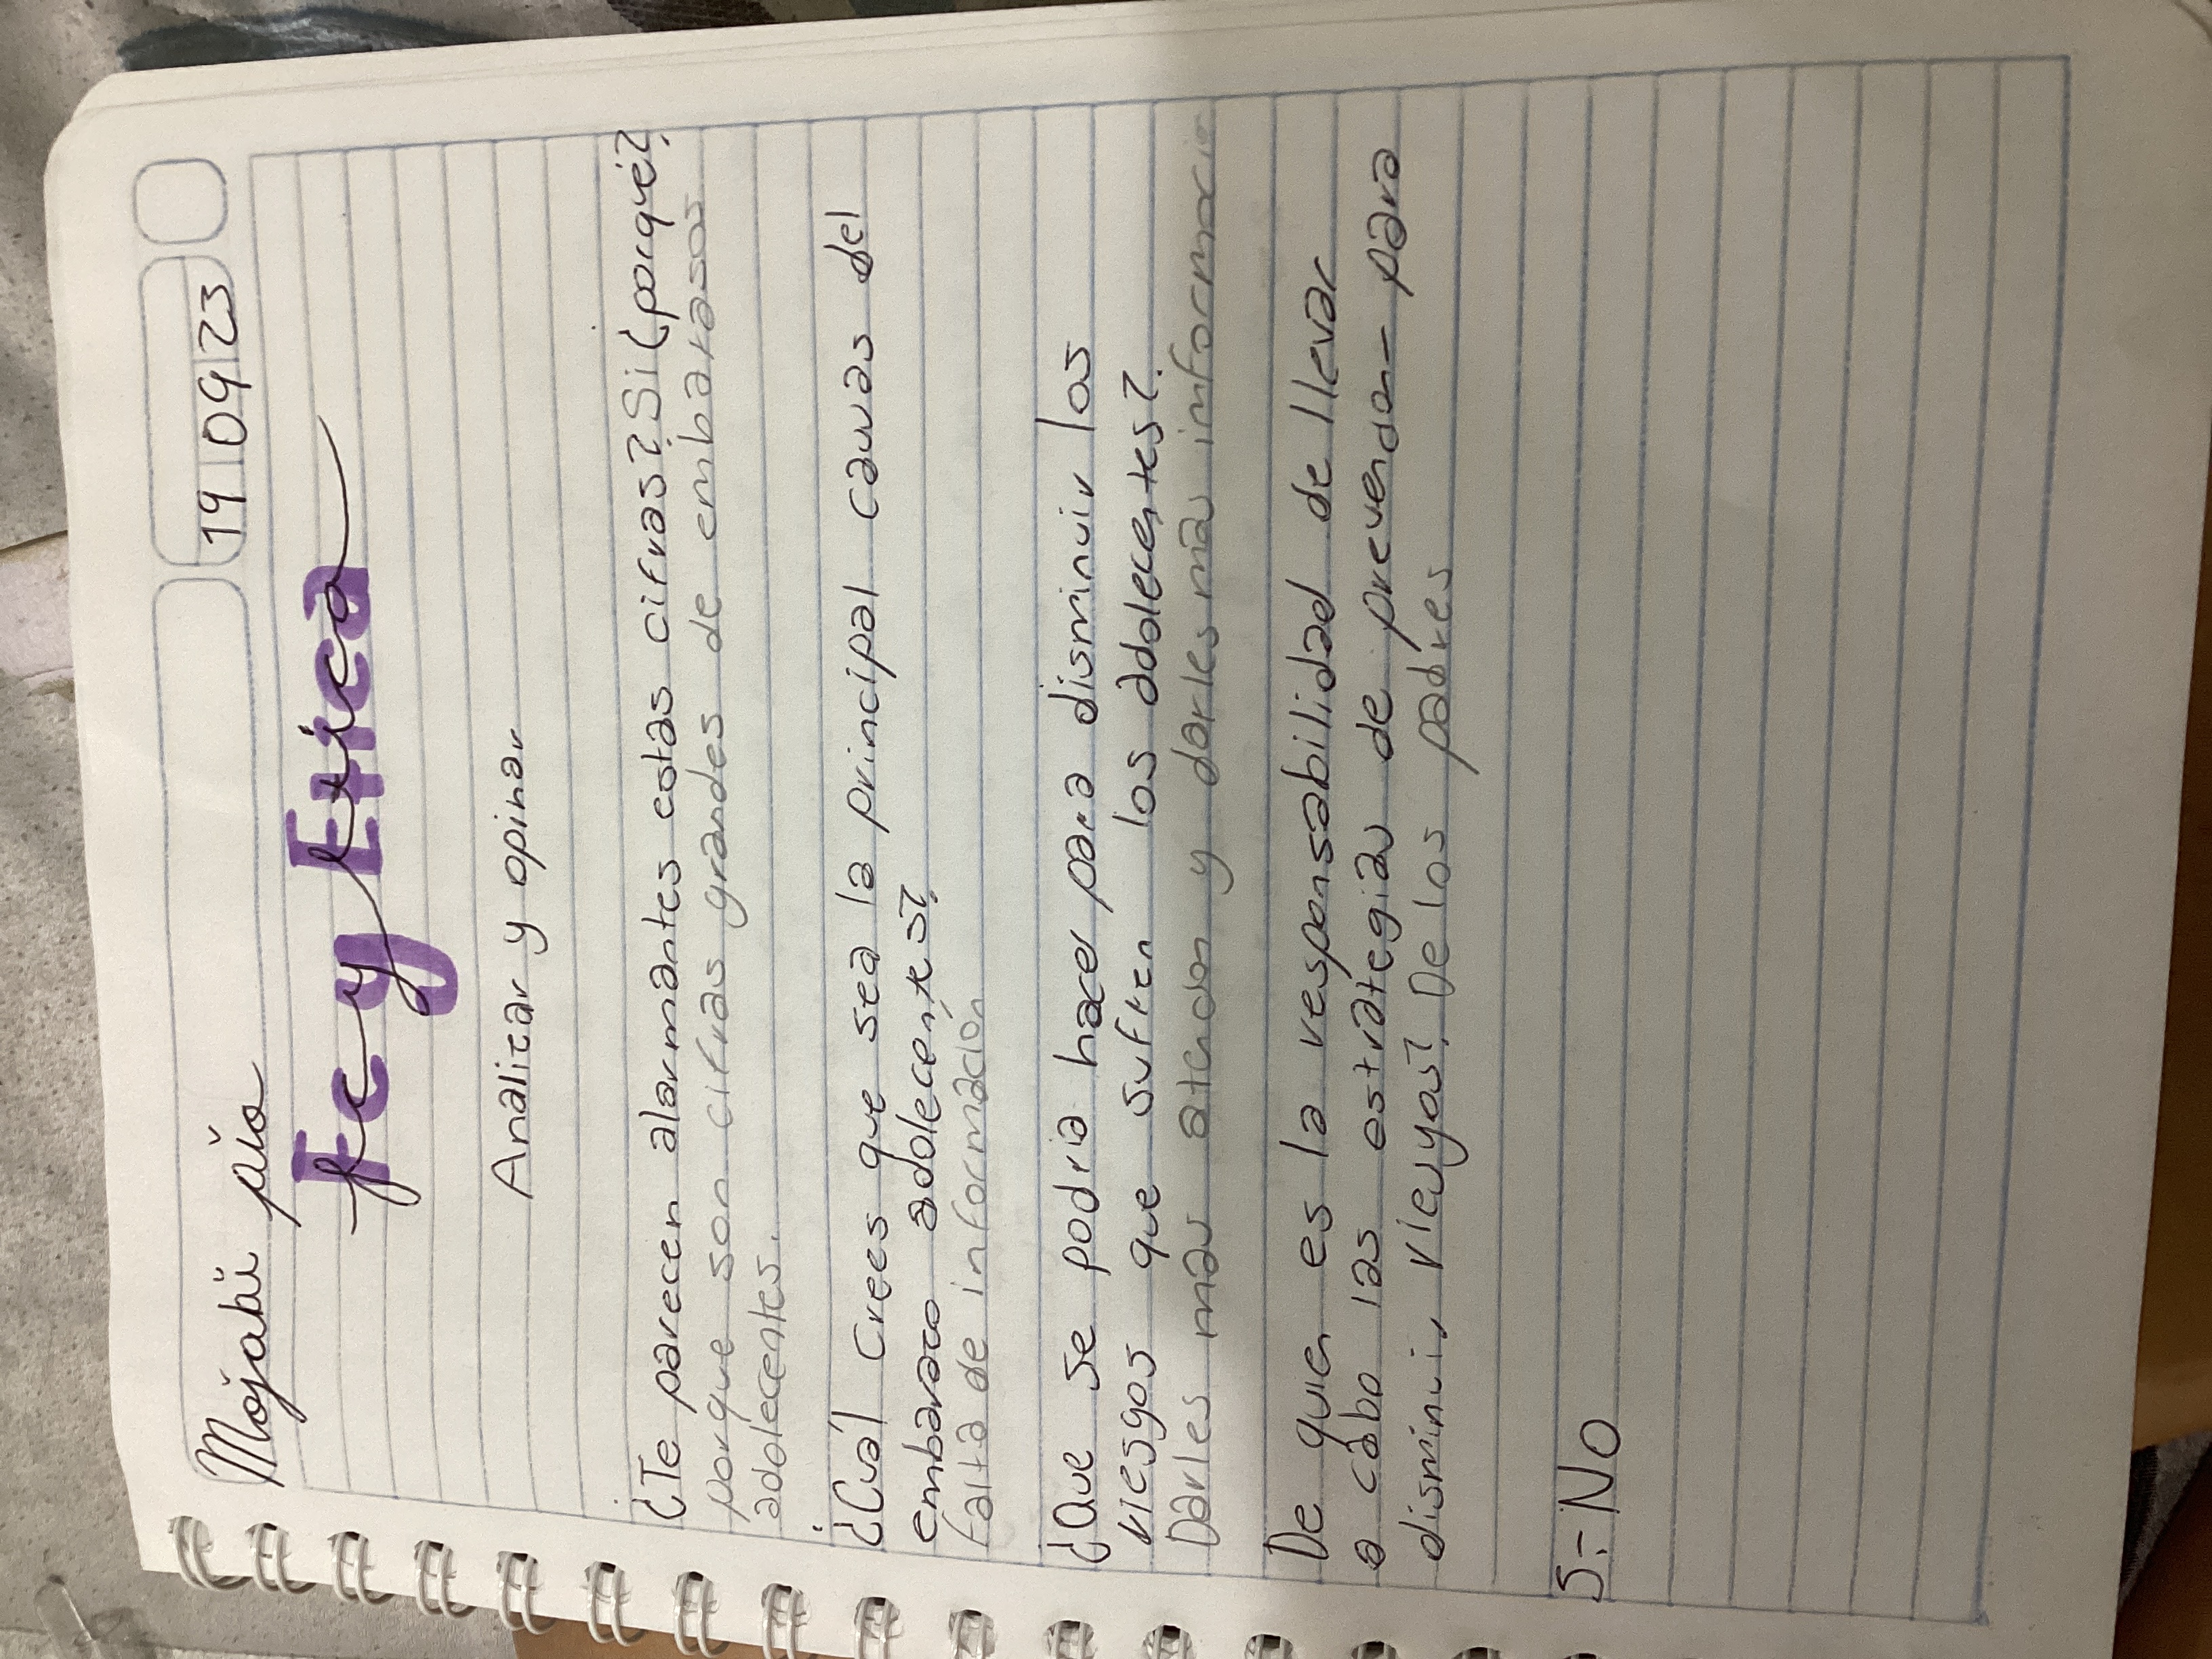 19 09 23
Fcy Etica
Analizar y opinar
¿Te parecen alarmantes estas cifras? Si ¿porqué?
porque son cifras grandes de embarasos
adolecentes.
¿Cuál Crees que sea la principal causas del
embarazo adolecentes?
falta de información
¿Que se podria hacer para disminuir los
riesgos que sufren los adolecentes?
Darles mas atencion y darles mas informacio
De quien es la responsabilidad de llevar
a cabo las estrategias de prevencion para
disminuir riesgos? De los padres
5.- No